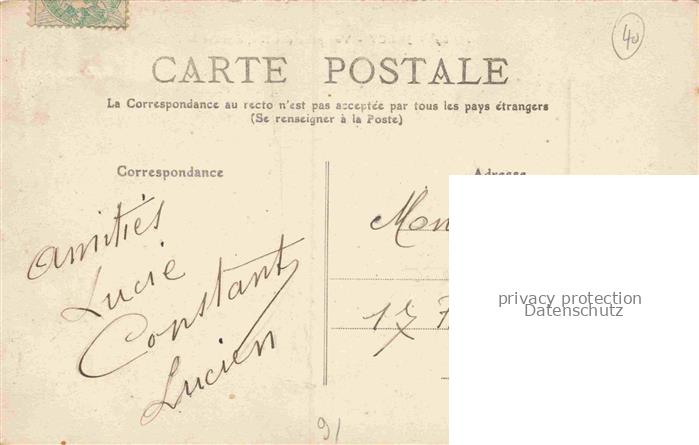 40
CARTE POSTALE
La Correspondance au recto n'est pas acceptée par tous les pays étrangers
(Se renseigner à la Poste)
Correspondance
Adresse
amitiés
Lucie
Constant
Lucien
Mon
17
privacy protection
Datenschutz
91